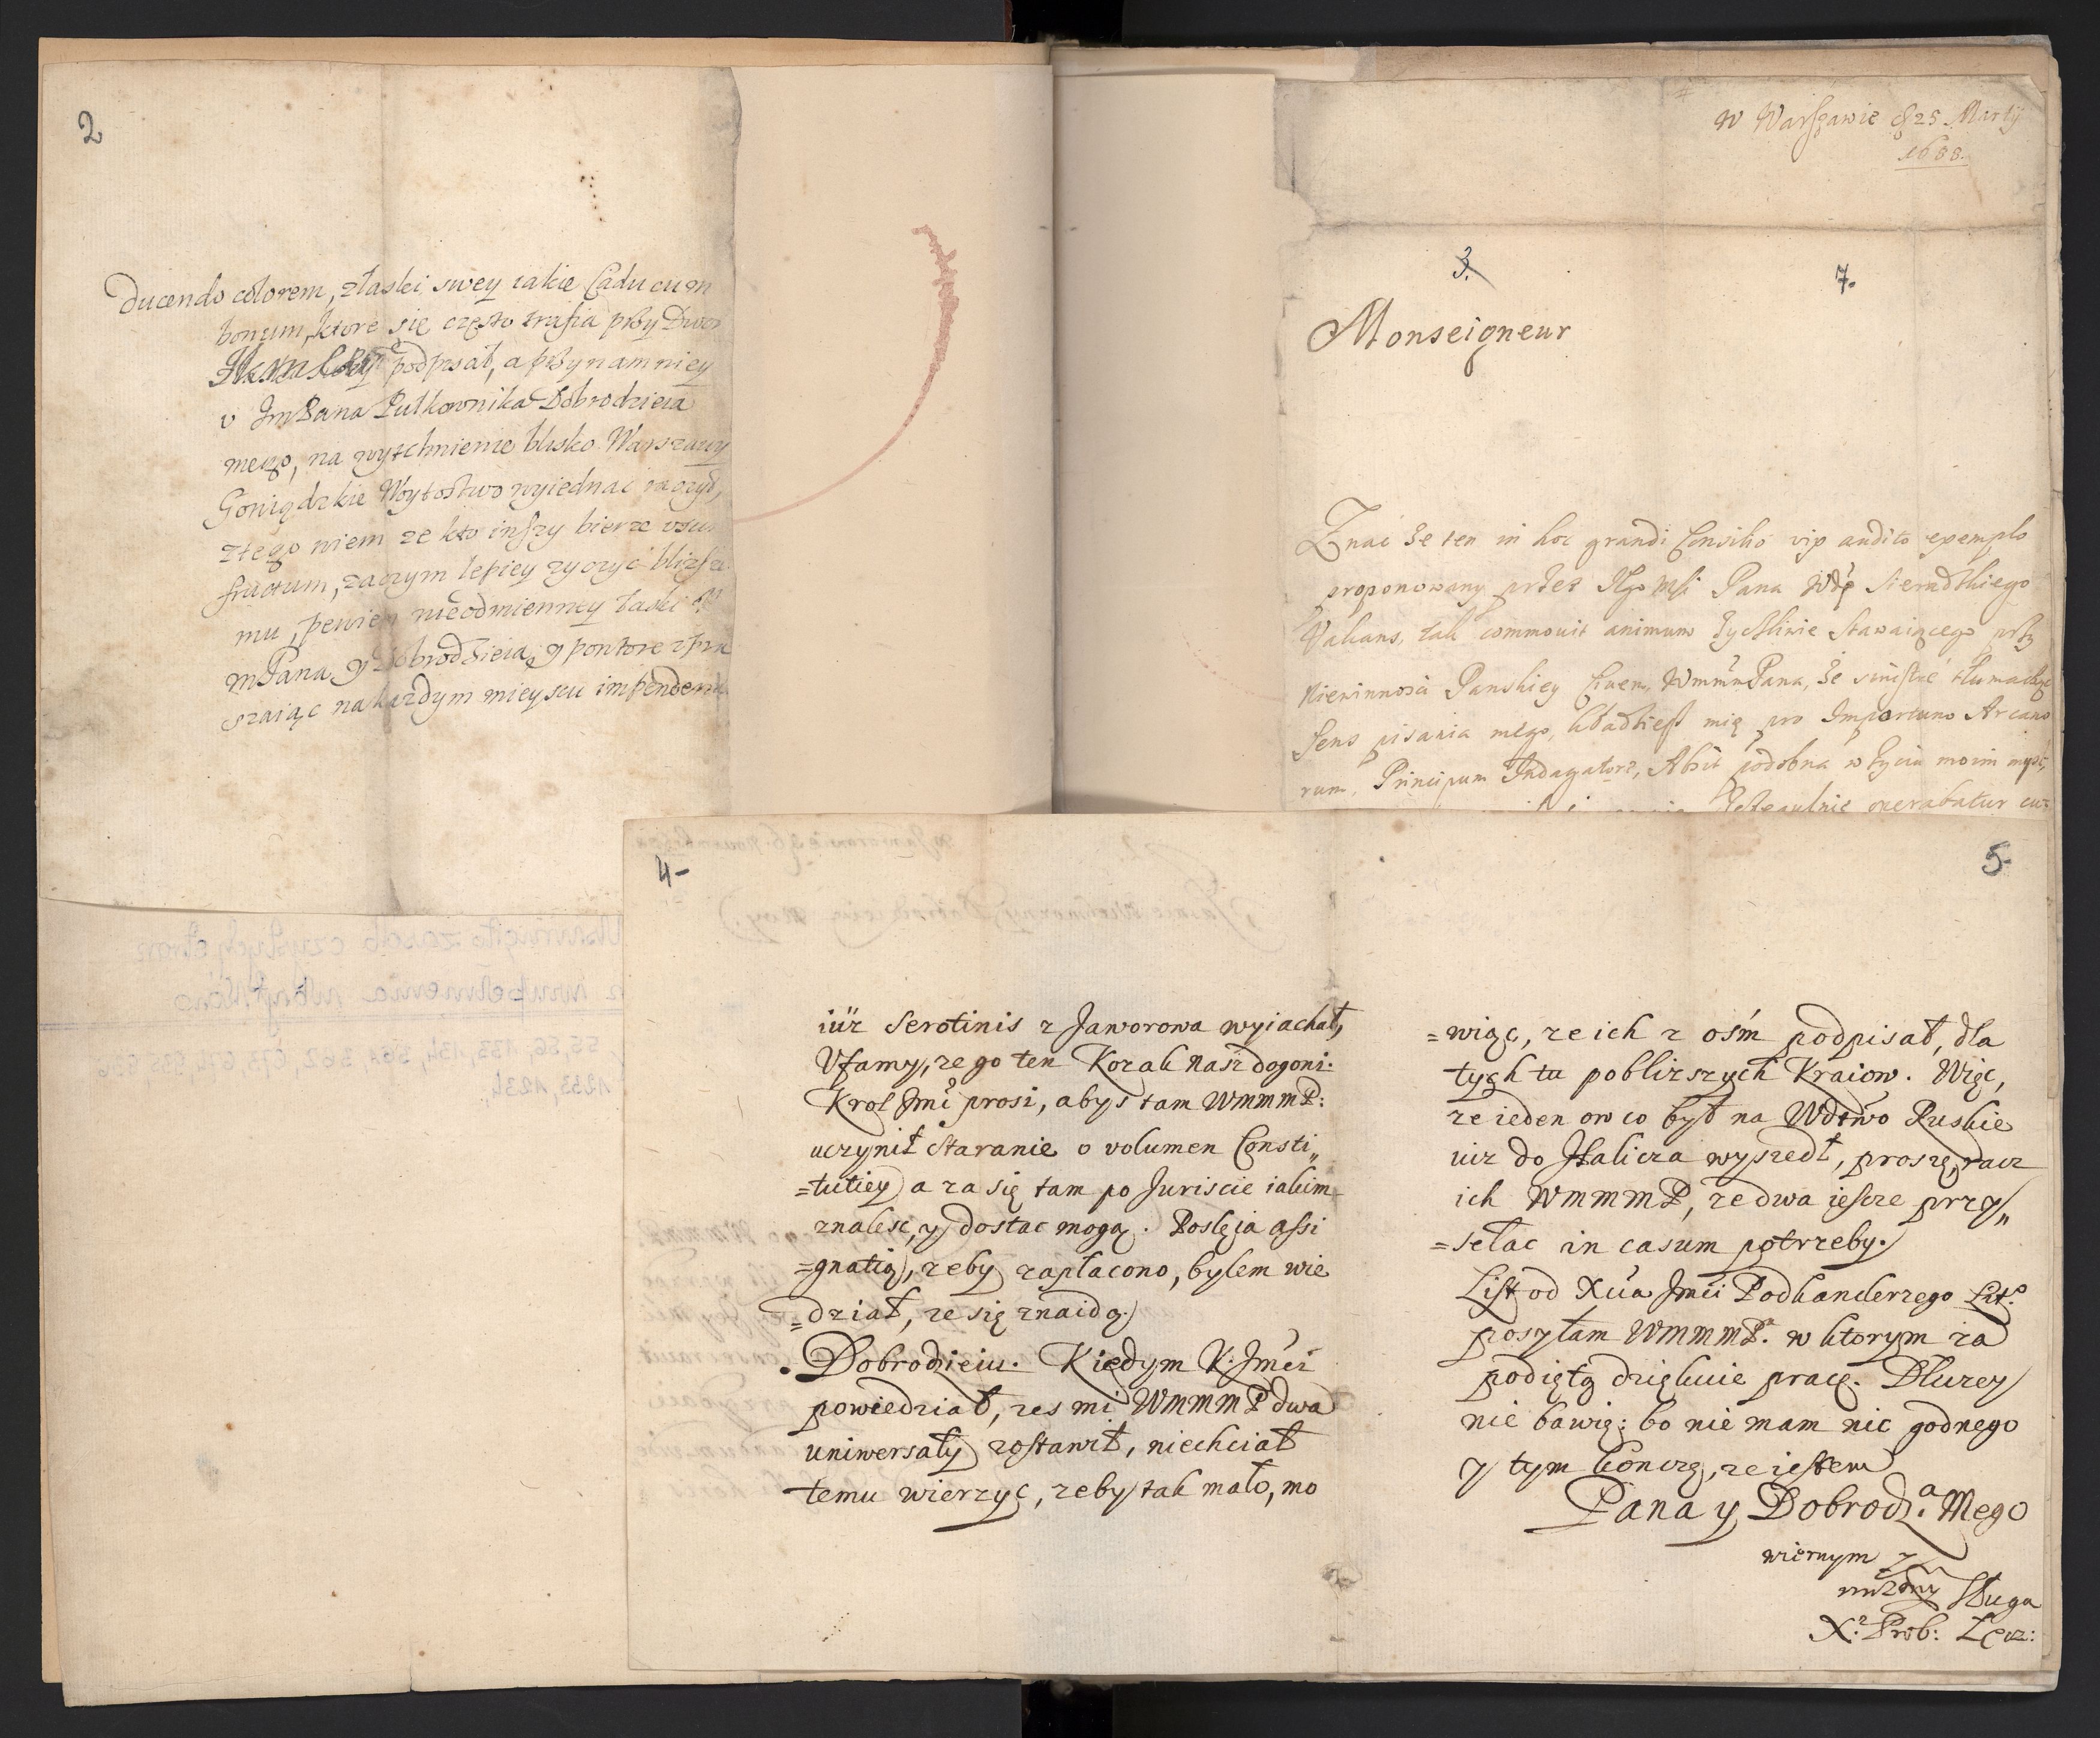 2
Ducendo colorem, złaski swey takie Caducum
bonum, ktore się często trafia przy Dwor
podpisał, a przynamniey
v JmPana Pułkownika Dobrodzieia
mego, na wytchnienie blisko Warszawy
Goniądzkie Woytostwo wyiednać raczył,
ztego wiem ze kto inszy bierze vsum
fructum, zaczym lepiey zyczyć bliższe
mu, pewien nieodmienney łaski
mPana y Dobrodzieia, y pontore
szaiąc nakazdym mieyscu impendem
w Warszawie d 25 Martÿ
1688.
3.
7.
Monseigneur
Znać że ten in hoc grandi Consilio vip audito exemplo
proponowany przez Jego Msci Pana Wdę Sieradzkiego
Vakans, tak commouit animum życzliwie stawaiącego przy
Niewinności Panskiey Ciuem, WmmmPana, że sinistré tłumacząc
sens pisania mego, kładziesz mię pro Importuno Arcano
rum Principum Indagatore, Absit podobna w życiu moim myśl,
onerabatur cu=
4-
iuz Serotinis z Jaworowa wyiachał,
Vfamy, ze go ten Kozak nasz dogoni.
Krol Jmć prosi, abys tam WmmmP:
uczynił staranie o volumen Consti„
=tutiey a za się tam po Juriscie iakim
znalesc, y dostac mogą. Poslę ia assi
=gnatią, zeby zapłacono, bylem wie
=dział, ze się znaidą.
Dobrodzieiu. Kiedym K. Jmći
powiedział, zes mi WMMMP dwa
uniwersały zostawił, niechciał
temu wierzyc, zeby tak mało, mo
5-
=wiąc, ze ich z ośm podpisał, dla
tych tu poblizszych Kraiow. Więc,
ze ieden ow co był na Wdztwo Ruskie
iuz do Halicza wyszedł, proszę, racz
ich WMMMP, ze dwa iescze przy„
=słac in casum potrzeby.
List od Xcia Jmći Podkanclerzego Lit.
posyłam WMMMPa. w ktorym za
podiętą dziękuie pracę. Dłuzey
nie bawię: bo nie mam nic godnego
y tym konczę, ze iestem
Pana y Dobrodz.a Mego
wiernym y
unizony Sługa
X. Prob: